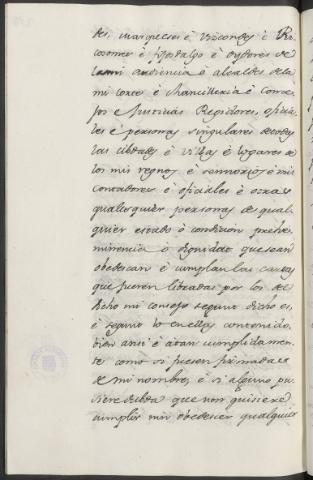 des, marqueses è Vizcondes è Ri
cosomes è Fijosdalgo è Oydores de
la mi audiencia è alcaldes de la
mi corte è Chancilleria è Conce
jos è Justicias Regidores, oficia
les è personas singulares de todas
las cibdades è villas è logares de
los mis regnos è sennorios è mis
Contadores è oficiales è otras
qualesquier personas de qual
quier estado ò condicion prehe
minencia ò dignidad que sean
obedescan è cumplan las cartas
que fueren libradas por los del
dicho mi consejo segund dicho es,
è segund lo en ellas contenido,
bien ansi è atan cumplidamen
te como si fuesen firmadas
de mi nombre, è si alguno pu
siere debda que non quisiere
cumplir nin obedescer qualquier